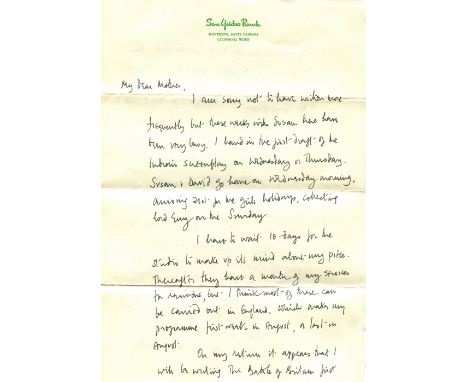 San Ysidro Ranch
MONTECITO, SANTA BARBARA
CALIFORNIA
My Dear Mother,
I am sorry not to have written more
frequently but these weeks with Susan here have
been very busy. I hand in the first draft of the
screenplay on Wednesday or Thursday.
Susan & David go home on Wednesday morning,
arriving 21st for the girls holidays, collecting
on the Sunday.
I have to wait 10 days for the
studio to make up its mind about my piece.
Thereafter they have a month of my services
for revisions, but I think most of these can
be carried out in England, which makes my
programme first week in August, or last in
August.
On my return it appears that I
will be writing The Battle of Britain first